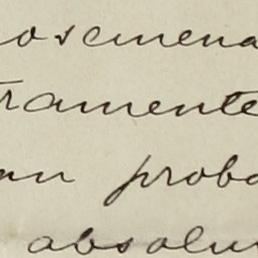 oscmena
tramente
an proba
absolu